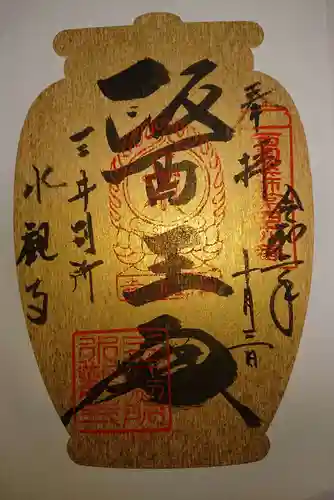 奉拝
令和二年
十月三日
醫王殿
三井別所
水観寺